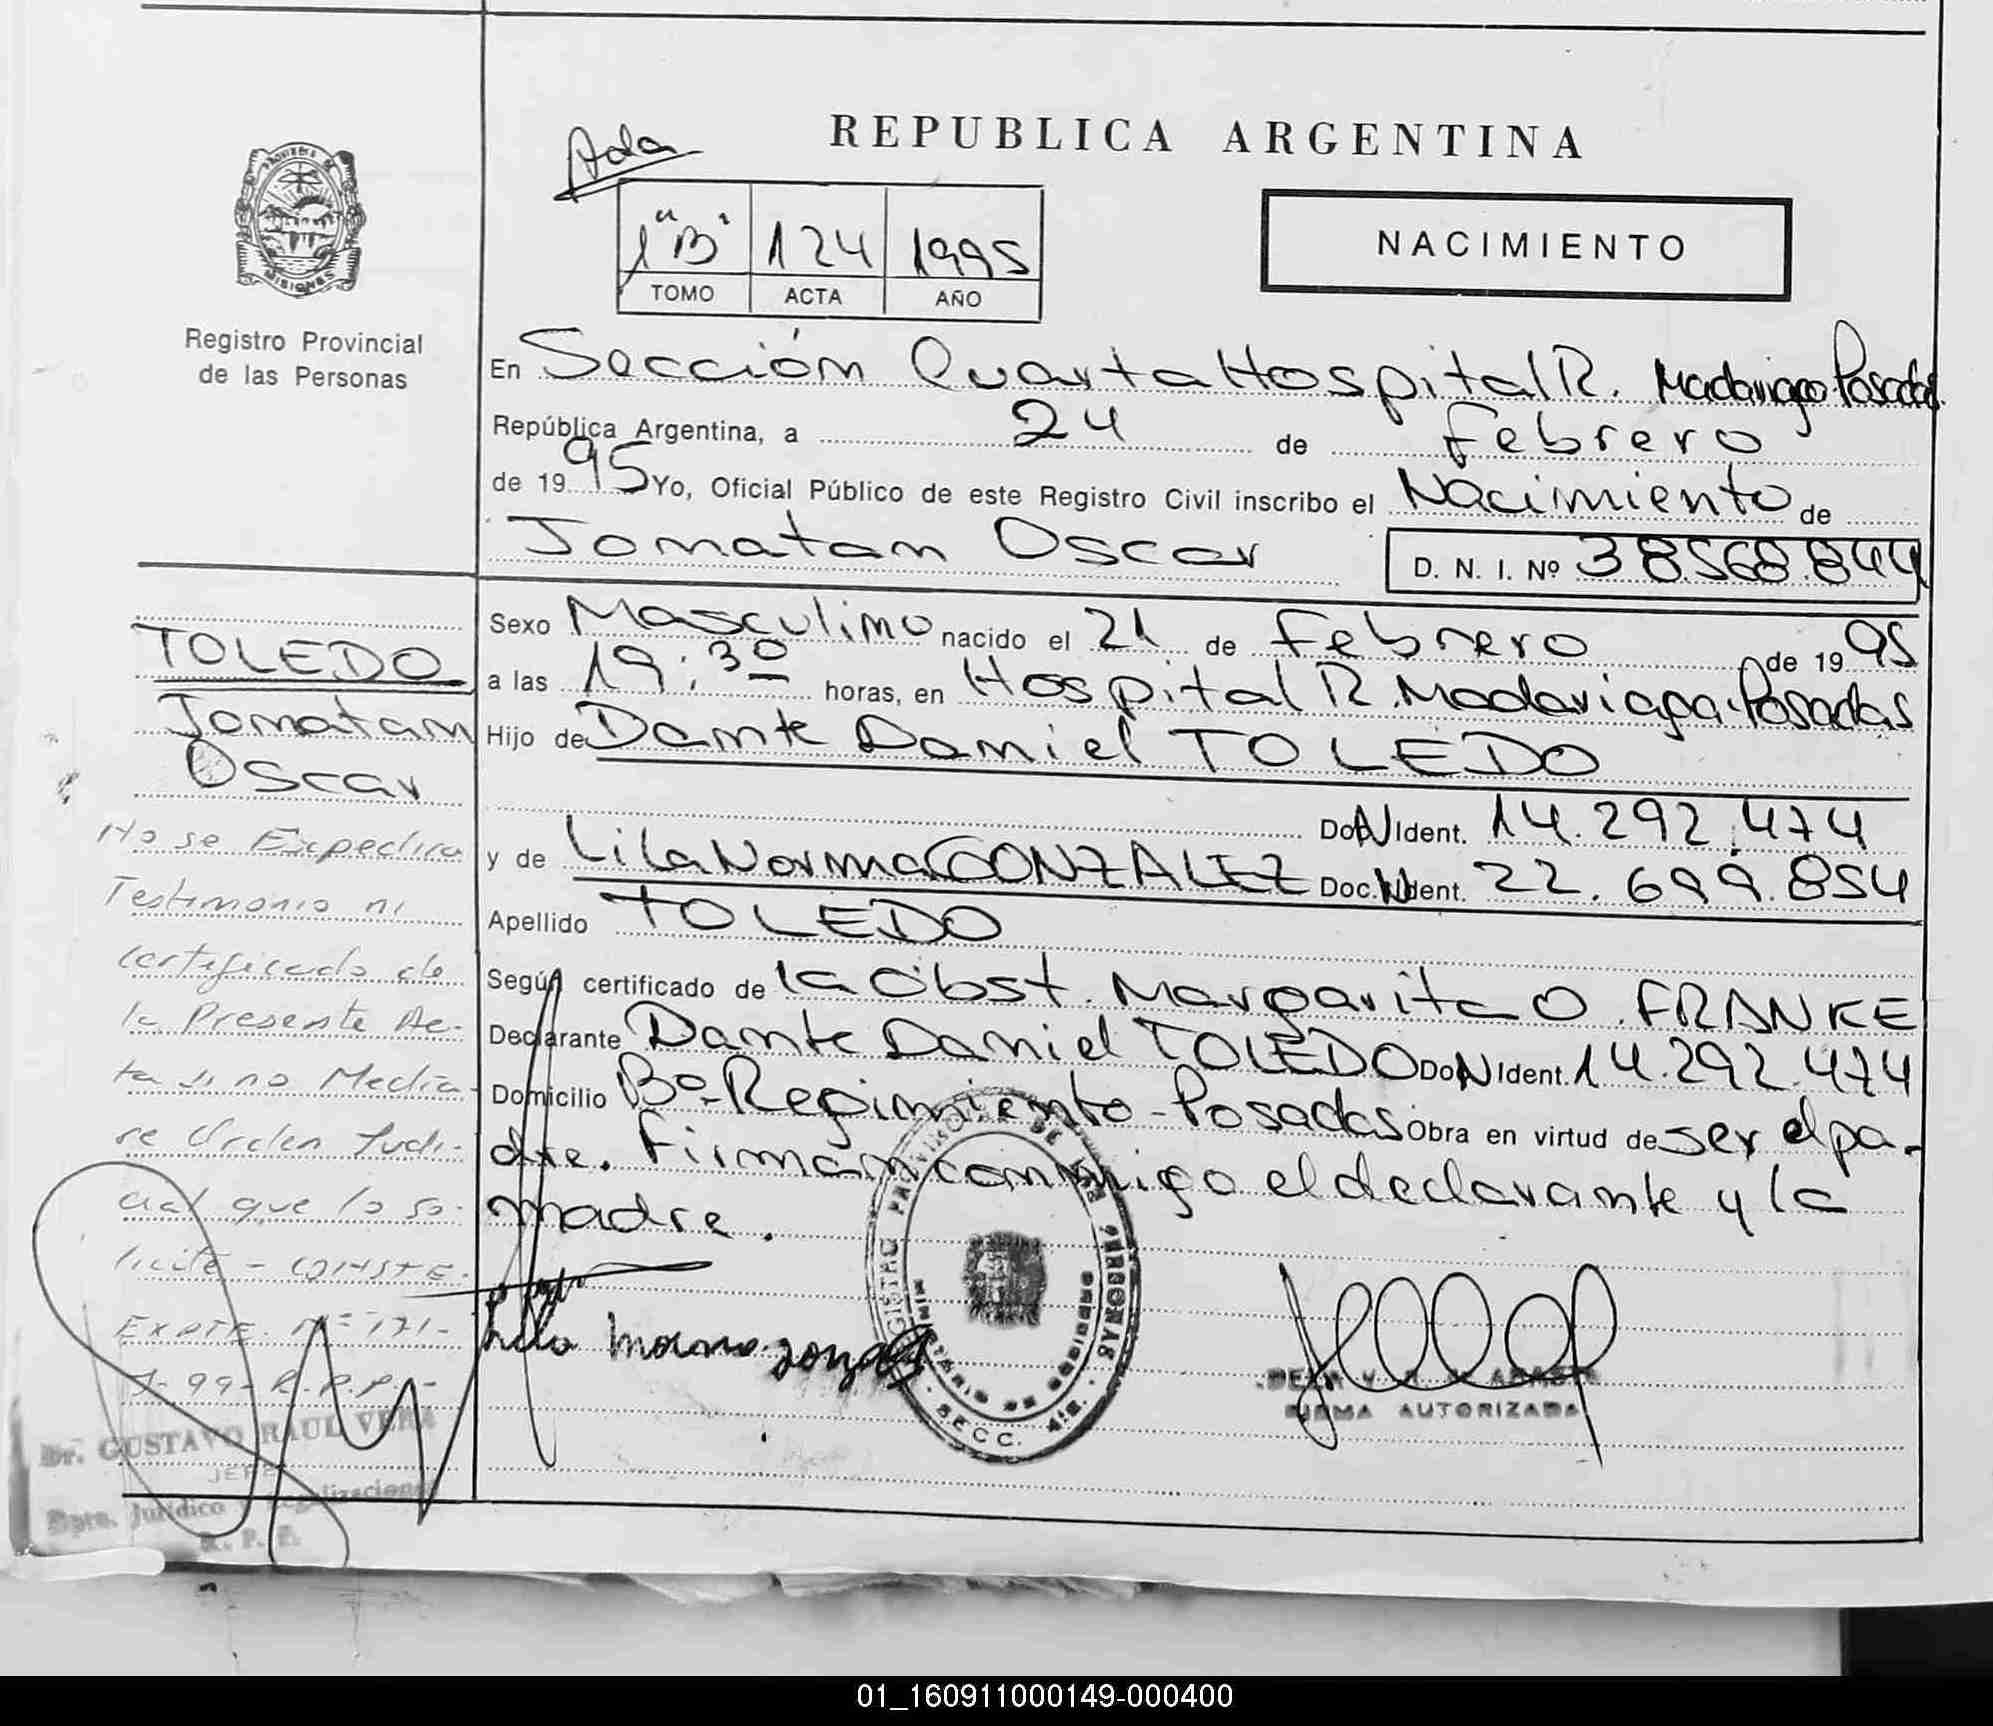 REPUBLICA ARGENTINA
Ada
1 "B" 124 1995
TOMO ACTA AÑO
NACIMIENTO
MISIONES
Registro Provincial
de las Personas
En Sección Cuarta Hospital R. Madariaga Posadas
República Argentina, a 24 de Febrero
de 1995 Yo, Oficial Público de este Registro Civil inscribo el Nacimiento de
Jonatan Oscar D. N. I. Nº 38.568.844
Sexo Masculino nacido el 21 de Febrero de 1995
a las 19:30 horas, en Hospital R. Madariaga-Posadas
Hijo de Dante Daniel TOLEDO
DocN Ident. 14.292.474
y de Lila Norma GONZALEZ Doc.N Ident. 22.699.854
Apellido TOLEDO
Según certificado de la Obst. Margarita O. FRANKE
Declarante Dante Daniel TOLEDO DocN Ident. 14.292.474
Domicilio Bº Regimiento-Posadas Obra en virtud de ser el pa-
dre. Firman conmigo el declarante y la
madre.
TOLEDO
Jonatan
Oscar
No se Expedira
Testimonio ni
certificado de
la Presente Ac-
ta si no Media-
re Orden Judi-
cial que lo so-
licite - CONSTE.
EXPTE. Nº 171-
J-99-R.P.P.-
Dr. GUSTAVO RAUL VERA
JEFE
Dpto. Jurídico y Legalizaciones
R. P. P.
Lila Norma Gonzalez
REGISTRO PROVINCIAL DE LAS PERSONAS
MINISTERIO DE GOBIERNO
SECC. 4ta.
FIRMA AUTORIZADA
01_160911000149-000400